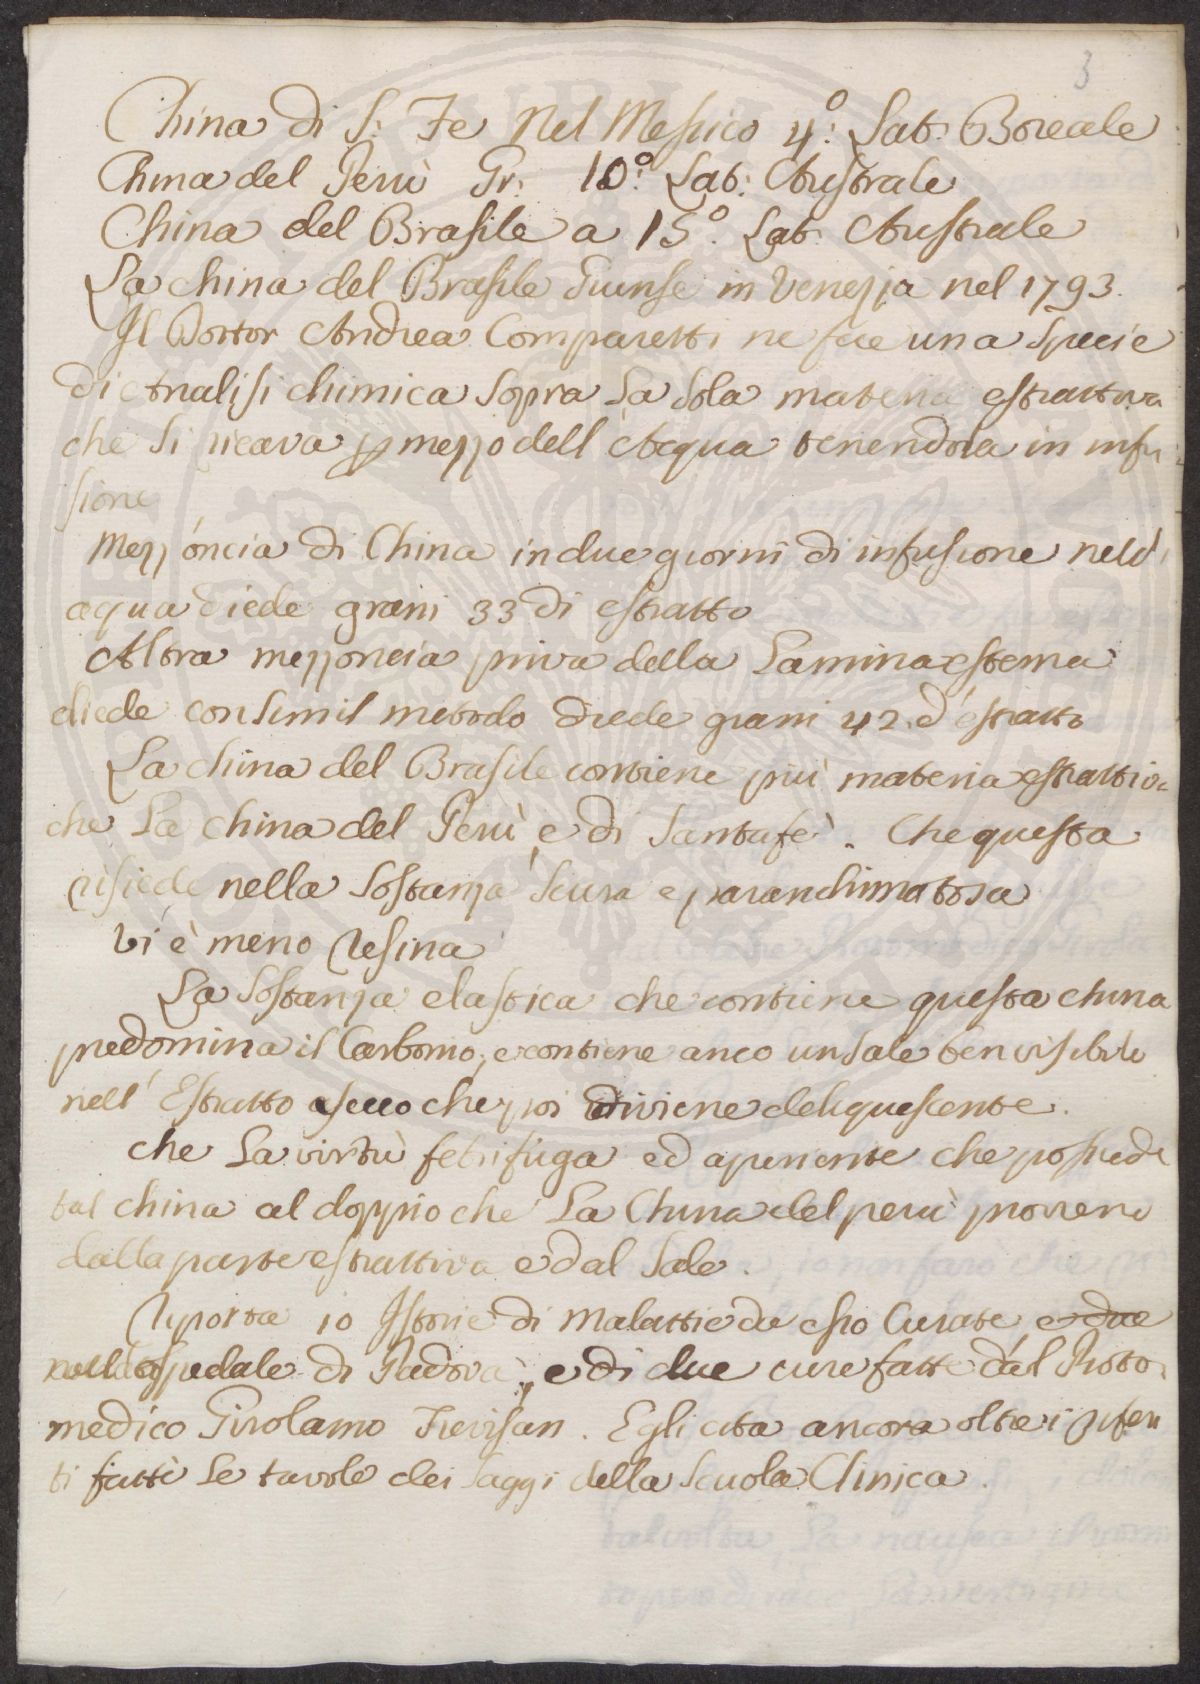 3
China di S. Fe Nel Messico 4°: Lat: Boreale
China del Perù Gr: 10°: Lat: Australe
China del Brasile a 15°. Lat. Australe
La china del Brasile Giunse in Venezia nel 1793.
Il Dottor Andrea Comparetti ne fae una specie
di Analisi chimica sopra La sola materia estrattiva
che si ricava p mezzo dell Acqua tenendola in infu-
sione
Mezz'óncia di China in due giorni di infusione nell'
aqua diede grani 33 di estratto
Altra mezzoncia priva della Lamina esterna
diede consimil metodo diede grani 42. d'estratto
La china del Brasile contiene più materia estrattiva
che La china del Perù e di Santafè. Che questa
risiede nella Sostanza scura e paranchimatosa
Vi è meno Resina
La Sostanza elastica che contiene questa china
predomina il Carbonio, e contiene anco un sale ben visibile
nell' Estratto asecco che poi diviene deliquescente.
che La virtù febrifuga ed aperiente che possiede
tal china al doppio che La China del perù proviene
dalla parte estrattiva e dal Sale.
Riporta 10 Istorie di Malattie da esso Curate, e due
nell ospedale di Padova, e di due cure fatte dal Proto-
medico Girolamo Trevisan. Egli cita ancora oltre i riferi
ti fatti Le tavole dei saggi della Scuola Clinica.